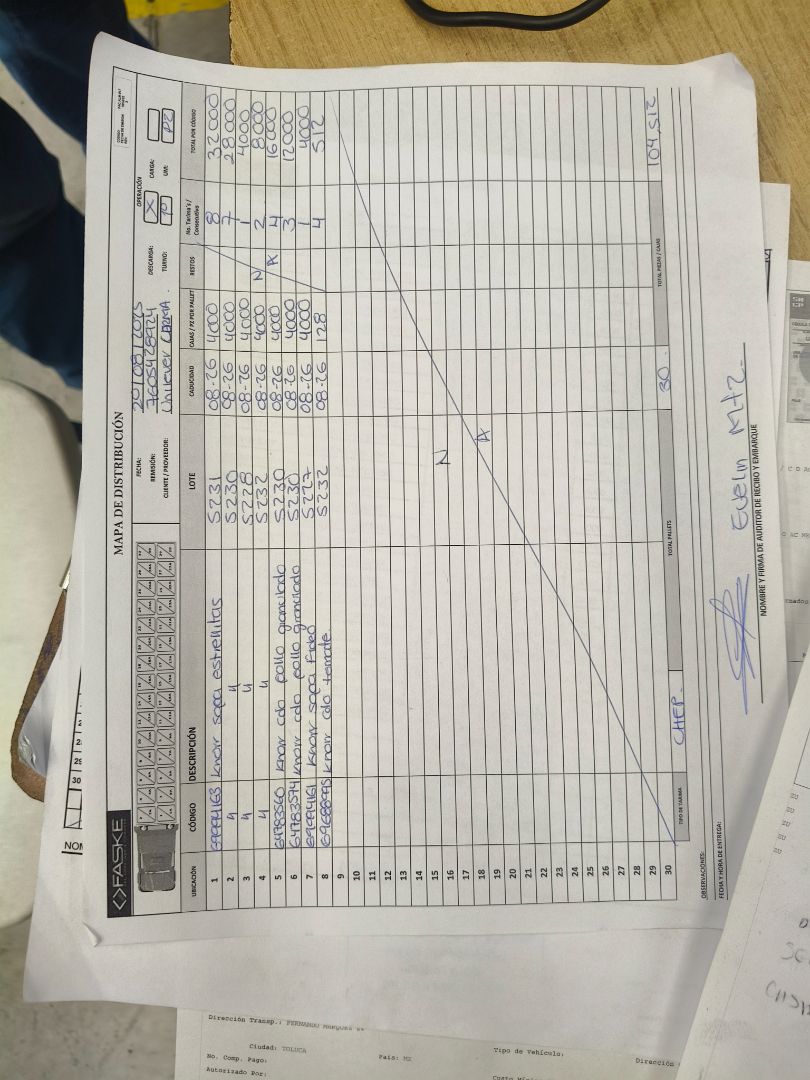 FASKE
MAPA DE DISTRIBUCIÓN
FECHA: 20/08/2025
REMISIÓN: 7605428924
CLIENTE / PROVEEDOR: Unilever LERMA.
OPERACIÓN
DESCARGA: X CARGA:
TURNO: 1º UM: PZ
UBICACIÓN CÓDIGO DESCRIPCIÓN LOTE CADUCIDAD CAJAS / PZ POR PALLET RESTOS No. Tarima's / Consecutivo TOTAL POR CÓDIGO
1 69994163 Knorr sopa estrellitas S231 08-26 4000 8 32000
2 " " S230 08-26 4000 7 28000
3 " " S228 08-26 4000 1 4000
4 " " S232 08-26 4000 N 2 8000
5 64783560 Knorr cdo pollo granulado S230 08-26 4000 A 4 16000
6 64783574 Knorr cdo pollo granulado S230 08-26 4000 3 12000
7 69994161 Knorr sopa fideo S227 08-26 4000 1 4000
8 69688995 Knorr cdo tomate S232 08-26 128 4 512
9
10
11
12
13
14
15 N
16
17
18 A
19
20
21
22
23
24
25
26
27
28
29
30
TIPO DE TARIMA CHEP. TOTAL PALLETS 30. TOTAL PIEZAS / CAJAS 104,512
OBSERVACIONES:
FECHA Y HORA DE ENTREGA:
Evelin Mtz.
NOMBRE Y FIRMA DE AUDITOR DE RECIBO Y EMBARQUE
Dirección Transp.: FERNANDO MARQUEZ
Ciudad: TOLUCA
País: MX
Tipo de Vehículo:
Dirección
No. Comp. Pago:
Autorizado Por: